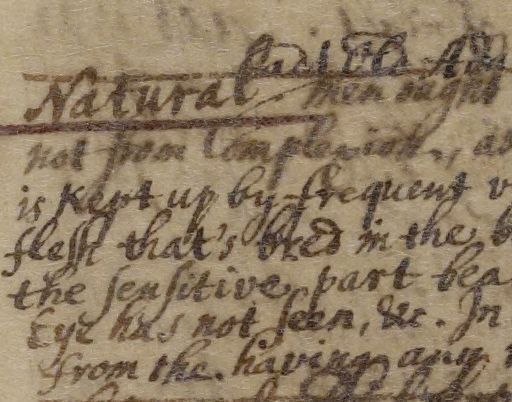 Natural men might
not from Complexion, as
is Kept up by frequent
flesh that's bred in the
the sensitive part bea
Eye has not seen, &c. In
from the having any